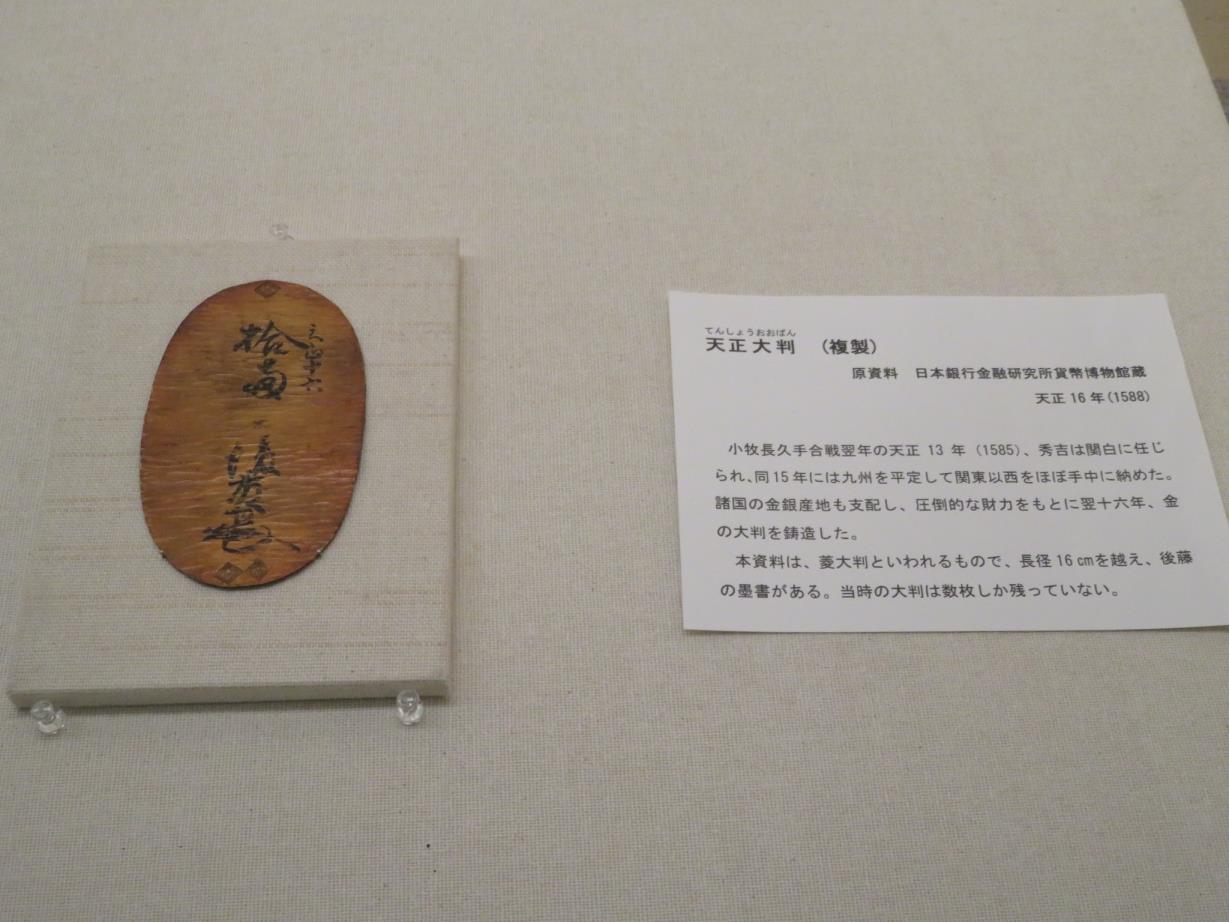 拾両
てんしょうおおばん
天正大判　（複製）
原資料　日本銀行金融研究所貨幣博物館蔵
天正16年(1588)
小牧長久手合戦翌年の天正 13 年（1585）、秀吉は関白に任じ
られ、同15年には九州を平定して関東以西をほぼ手中に納めた。
諸国の金銀産地も支配し、圧倒的な財力をもとに翌十六年、金
の大判を鋳造した。
本資料は、菱大判といわれるもので、長径16㎝を越え、後藤
の墨書がある。当時の大判は数枚しか残っていない。